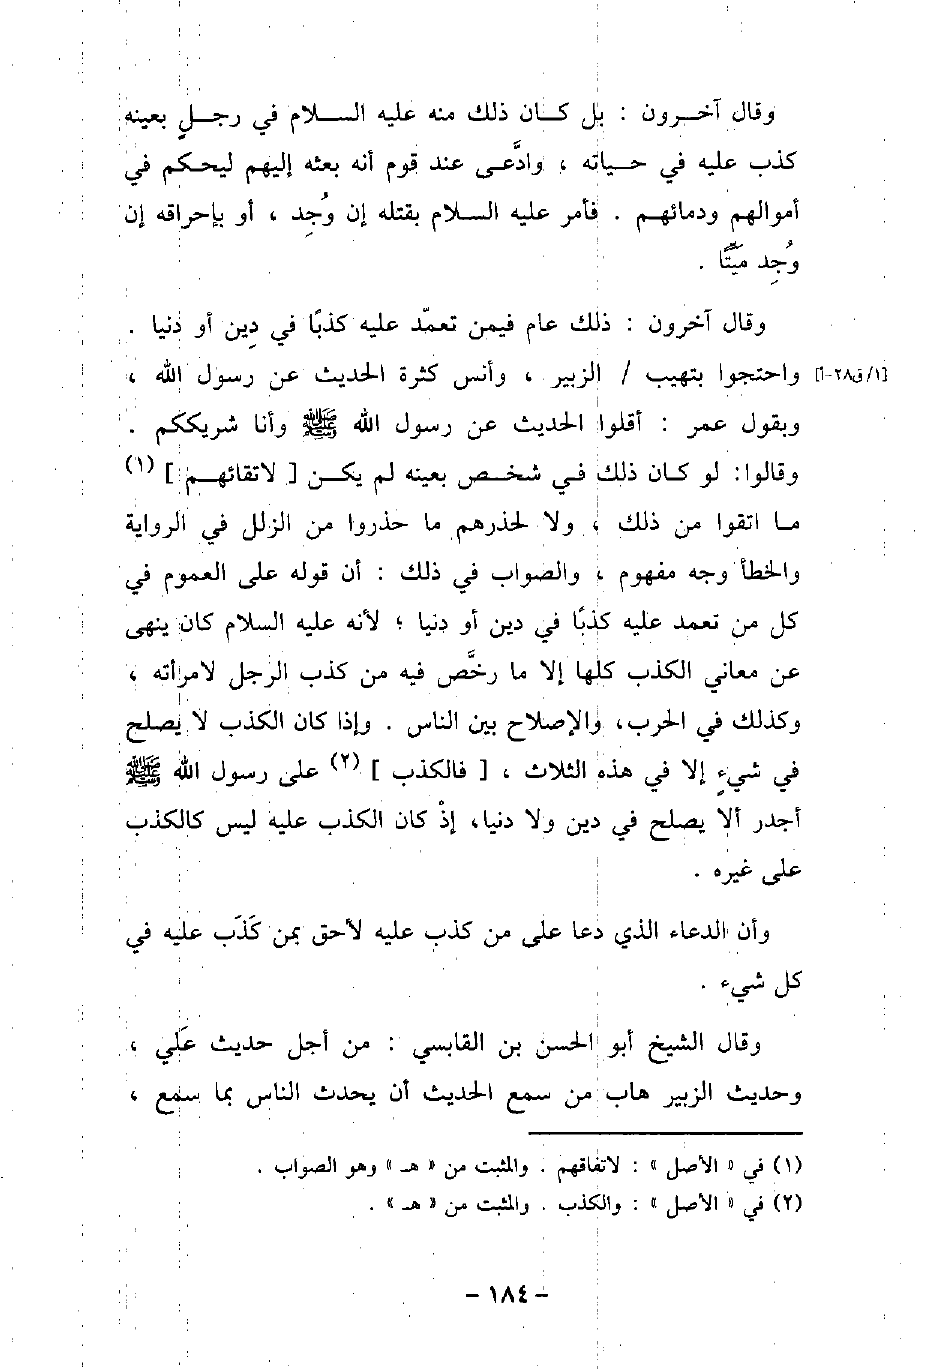 وقال آخرون : بل كان ذلك منه عليه السلام في رجلٍ بعينه
كذب عليه في حياته ، وادَّعى عند قوم أنه بعثه إليهم ليحكم في
أموالهم ودمائهم . فأمر عليه السلام بقتله إن وُجِد ، أو بإحراقه إن
وُجِد ميِّتًا .
وقال آخرون : ذلك عام فيمن تعمّد عليه كذبًا في دِين أو دنيا .
[١/ق٢٨-أ] واحتجوا بتهيب / الزبير ، وأنس كثرة الحديث عن رسول الله ،
وبقول عمر : أقلوا الحديث عن رسول الله ﷺ وأنا شريككم .
وقالوا: لو كان ذلك في شخص بعينه لم يكن [ لاتقائهم ] (١)
ما اتقوا من ذلك ، ولا لحذرهم ما حذروا من الزلل في الرواية
والخطأ وجه مفهوم ، والصواب في ذلك : أن قوله على العموم في
كل من تعمد عليه كذبًا في دين أو دنيا ؛ لأنه عليه السلام كان ينهى
عن معاني الكذب كلها إلا ما رخَّص فيه من كذب الرجل لامرأته ،
وكذلك في الحرب، والإصلاح بين الناس . وإذا كان الكذب لا يصلح
في شيءٍ إلا في هذه الثلاث ، [ فالكذب ] (٢) على رسول الله ﷺ
أجدر ألا يصلح في دين ولا دنيا، إذْ كان الكذب عليه ليس كالكذب
على غيره .
وأن الدعاء الذي دعا على من كذب عليه لأحق بمن كَذَب عليه في
كل شيء .
وقال الشيخ أبو الحسن بن القابسي : من أجل حديث عَلي ،
وحديث الزبير هاب من سمع الحديث أن يحدث الناس بما سمع ،
(١) في « الأصل » : لاتفاقهم . والمثبت من « هـ » وهو الصواب .
(٢) في « الأصل » : والكذب . والمثبت من « هـ » .
- ١٨٤ -